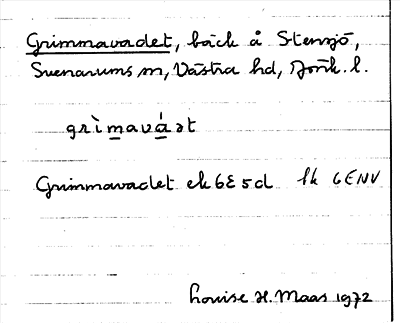 Grimmavadet, bäck å Stensjö,
Svenarums sn, Västra hd, Jönk. l.
grìmavá ət
Grimmavadet ek 6E5d lk 6ENV
Louise H. Maas 1972